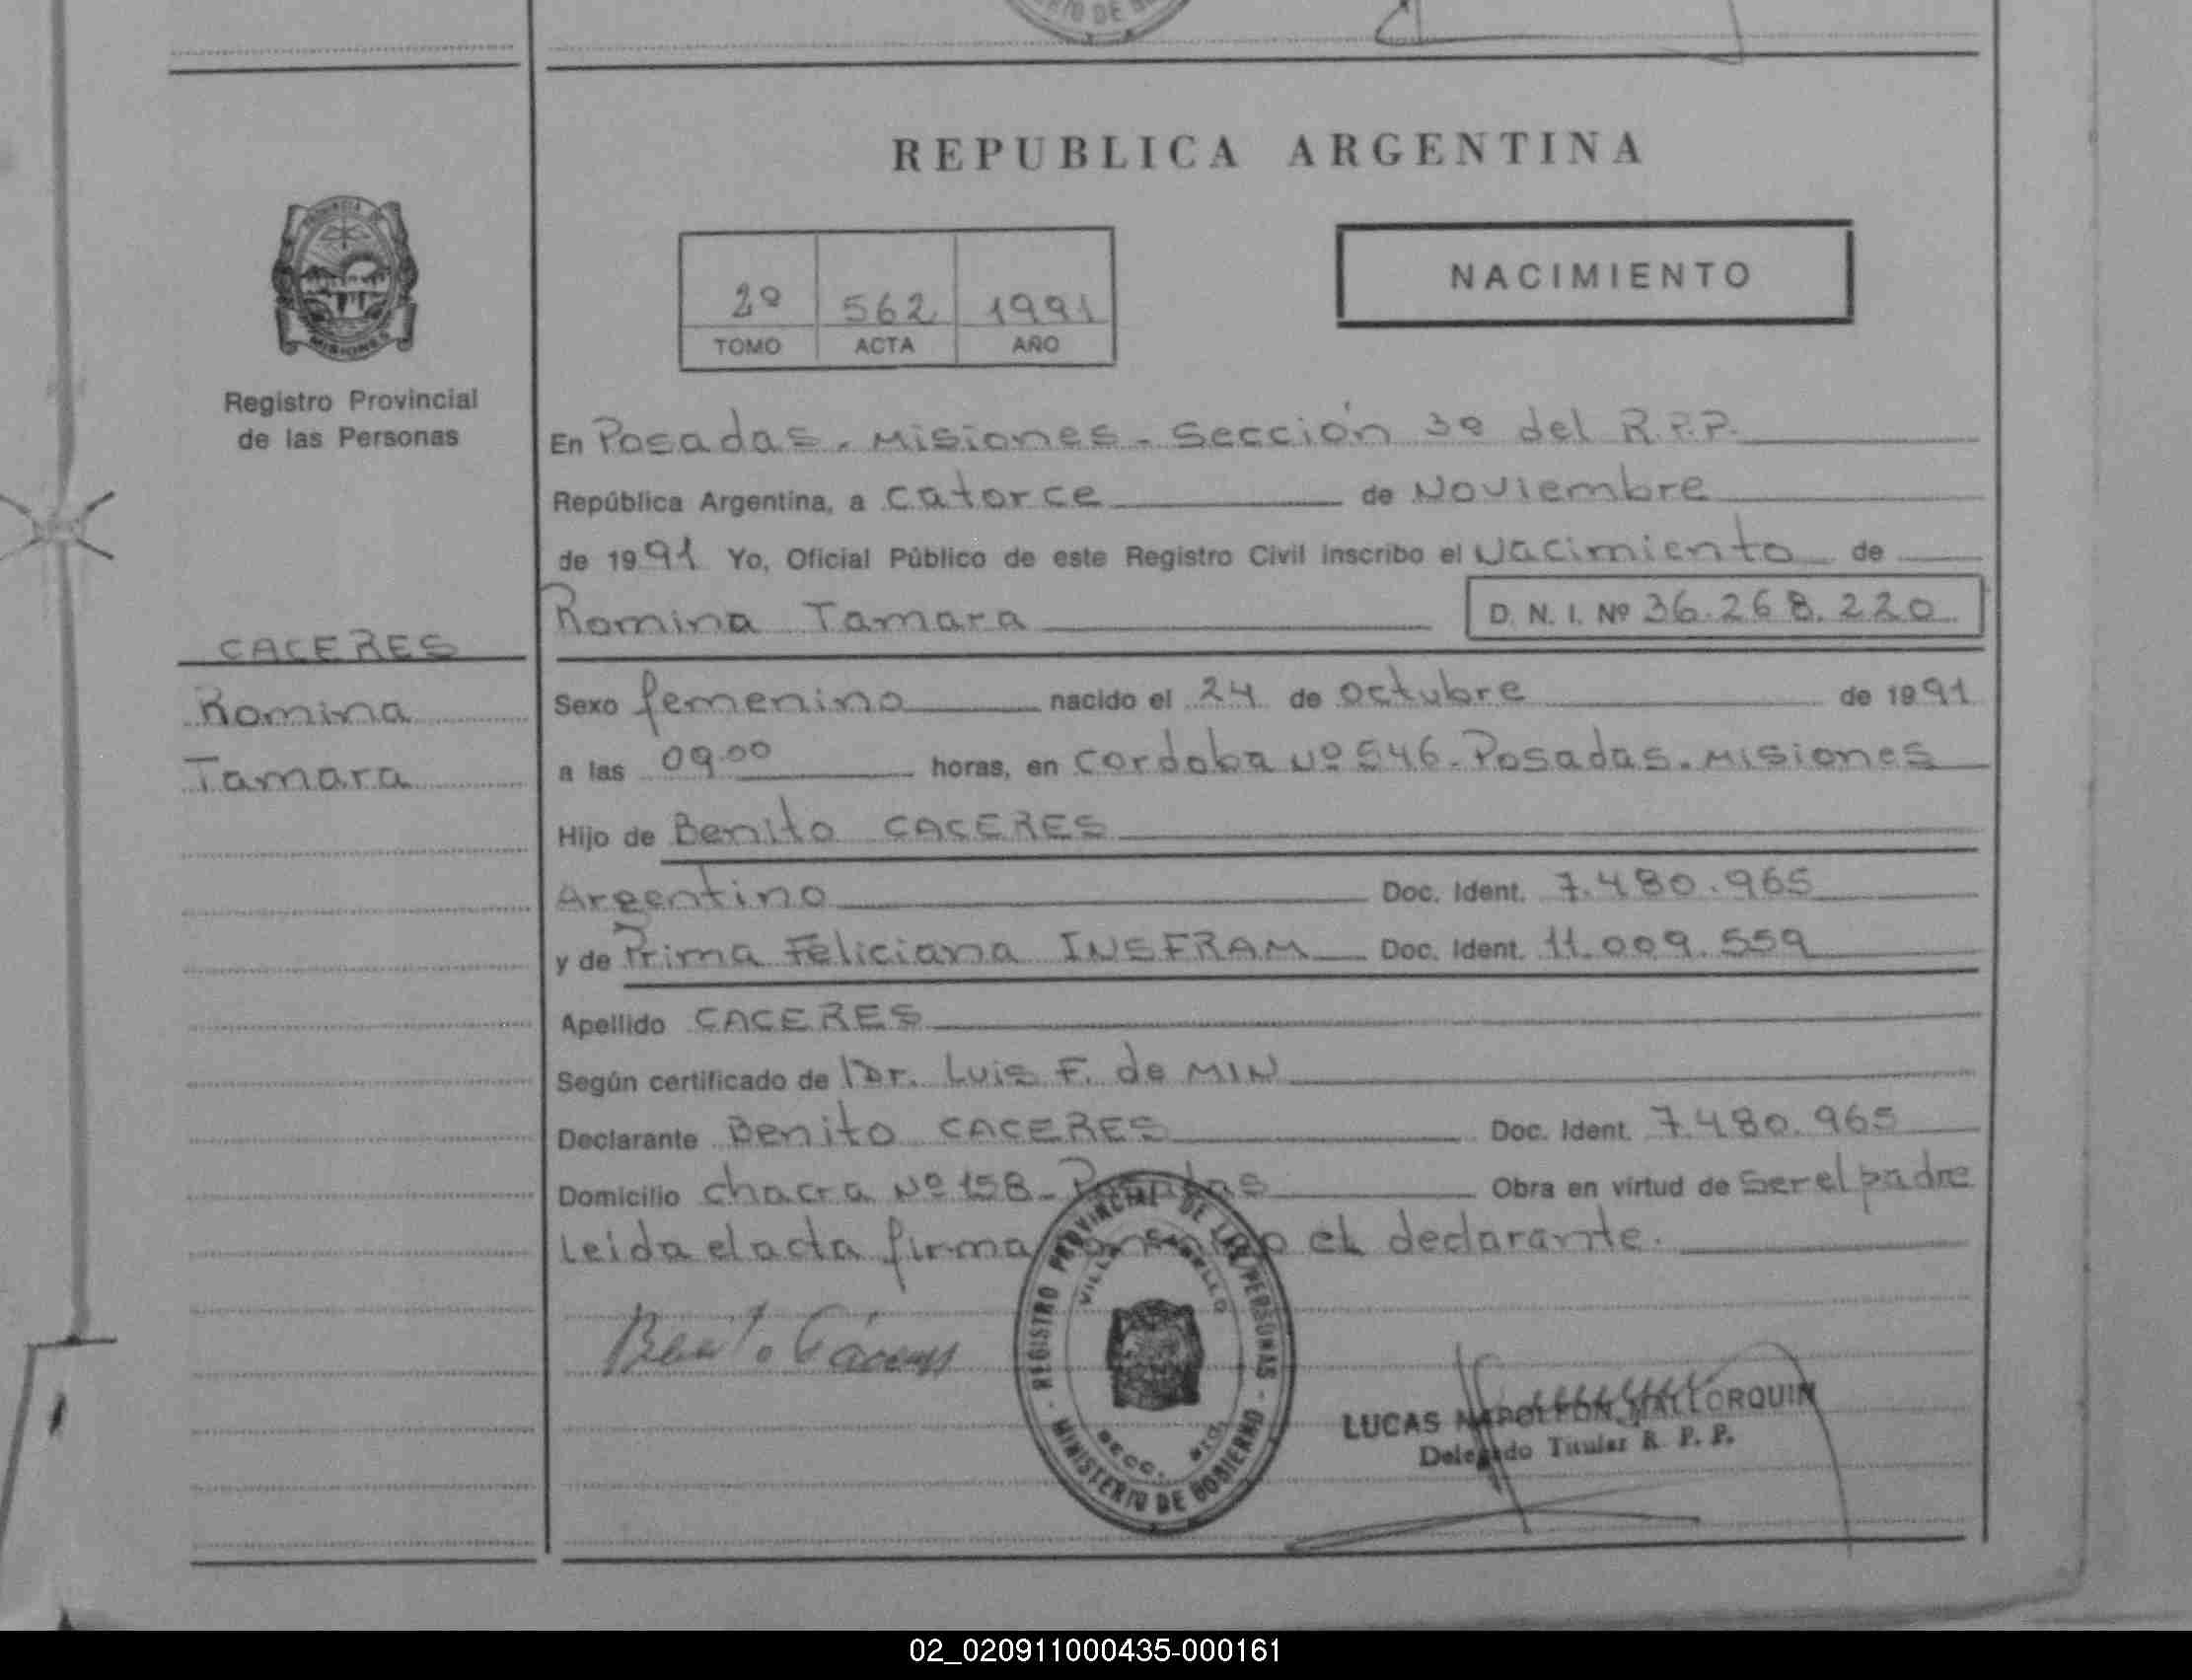 REPUBLICA ARGENTINA
2º 562 1991
TOMO ACTA AÑO
NACIMIENTO
PROVINCIA DE
MISIONES
Registro Provincial
de las Personas
CACERES
Romina
Tamara
En Posadas. Misiones. Sección 3º del R.P.P.
República Argentina, a catorce de Noviembre
de 1991 Yo, Oficial Público de este Registro Civil inscribo el Nacimiento de
Romina Tamara D. N. I. Nº 36.268.220
Sexo femenino nacido el 24 de octubre de 1991
a las 09.00 horas, en Cordoba Nº 546. Posadas. Misiones
Hijo de Benito CACERES
Argentino Doc. Ident. 7.480.965
y de Prima Feliciana INSFRAM Doc. Ident. 11.009.559
Apellido CACERES
Según certificado de Dr. Luis F. de MIN
Declarante Benito CACERES Doc. Ident. 7.480.965
Domicilio chacra Nº 158. Posadas Obra en virtud de ser el padre
Leida el acta firma el declarante.
Benito Cáceres
REGISTRO PROVINCIAL DE LAS PERSONAS - MINISTERIO DE GOBIERNO -
SECC.
LUCAS NAPOLEON MALLORQUIN
Delegado Titular R. P. P.
02_020911000435-000161